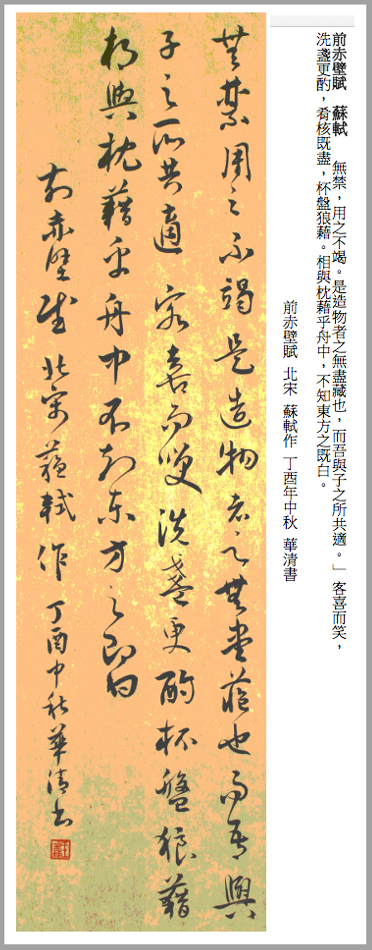 前赤壁賦 蘇軾 無禁，用之不竭。是造物者之無盡藏也，而吾與子之所共適。」客喜而笑，
洗盞更酌，肴核既盡，杯盤狼藉。相與枕藉乎舟中，不知東方之既白。
前赤壁賦 北宋 蘇軾作 丁酉年中秋 華清書
無禁用之不竭是造物者之無盡藏也而吾與
子之所共適客喜而笑洗盞更酌杯盤狼藉
相與枕藉乎舟中不知東方之既白
前赤壁賦北宋蘇軾作丁酉中秋華清書